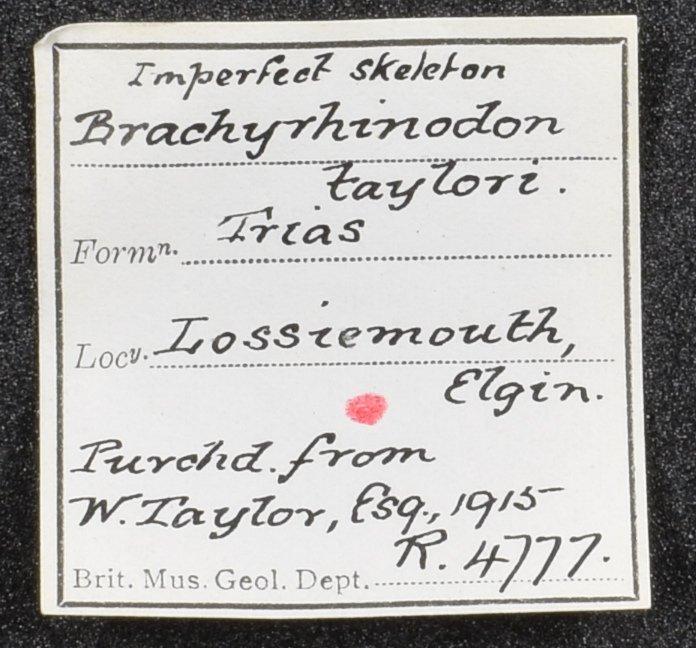 Imperfect skeleton
Brachyrhinodon
taylori.
Formn. Trias
Locy. Lossiemouth,
Elgin.
Purchd. from
W. Taylor, Esq., 1915
R. 4777.
Brit. Mus. Geol. Dept.